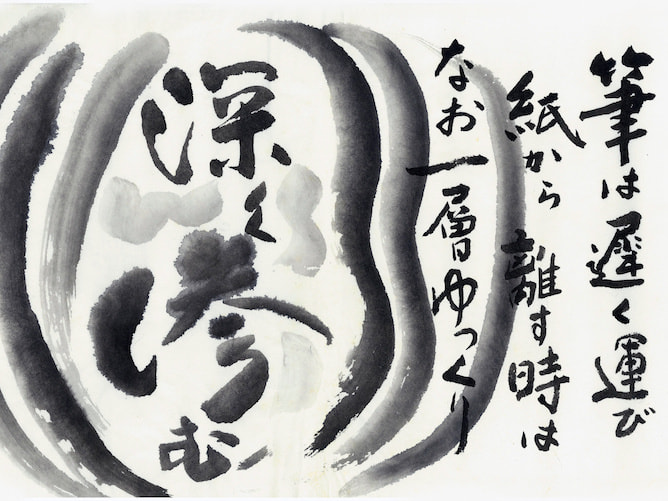 筆は遅く運び
紙から離す時は
なお一層ゆっくり
深く
滲む